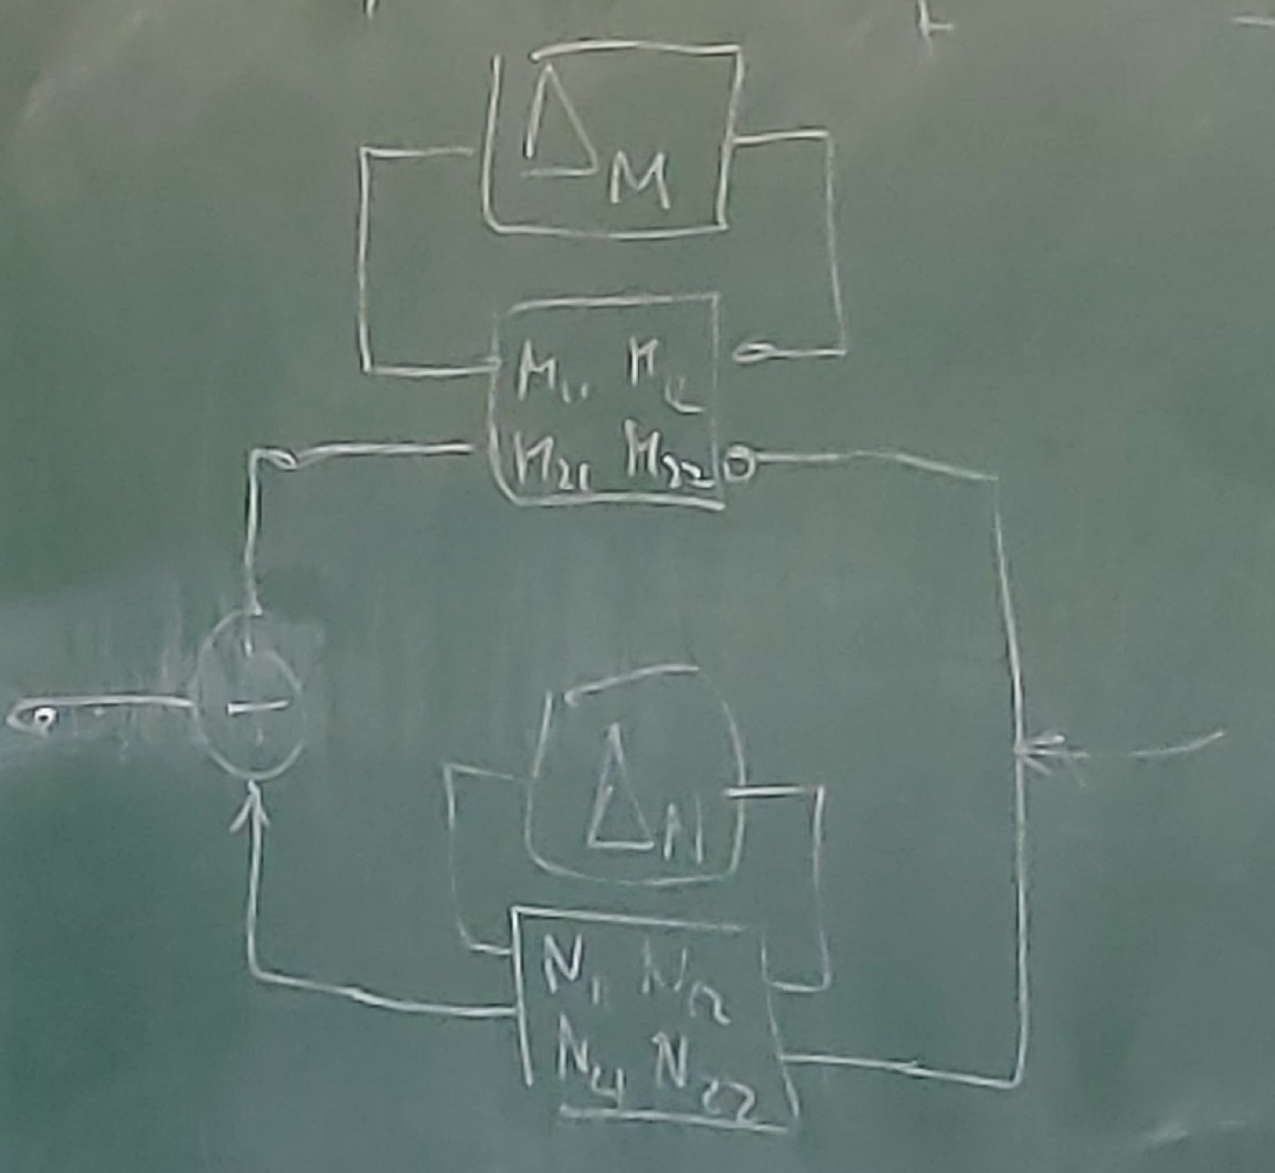 Δ_M
M₁₁ M₁₂
M₂₁ M₂₂
Δ_N
N₁₁ N₁₂
N₂₁ N₂₂